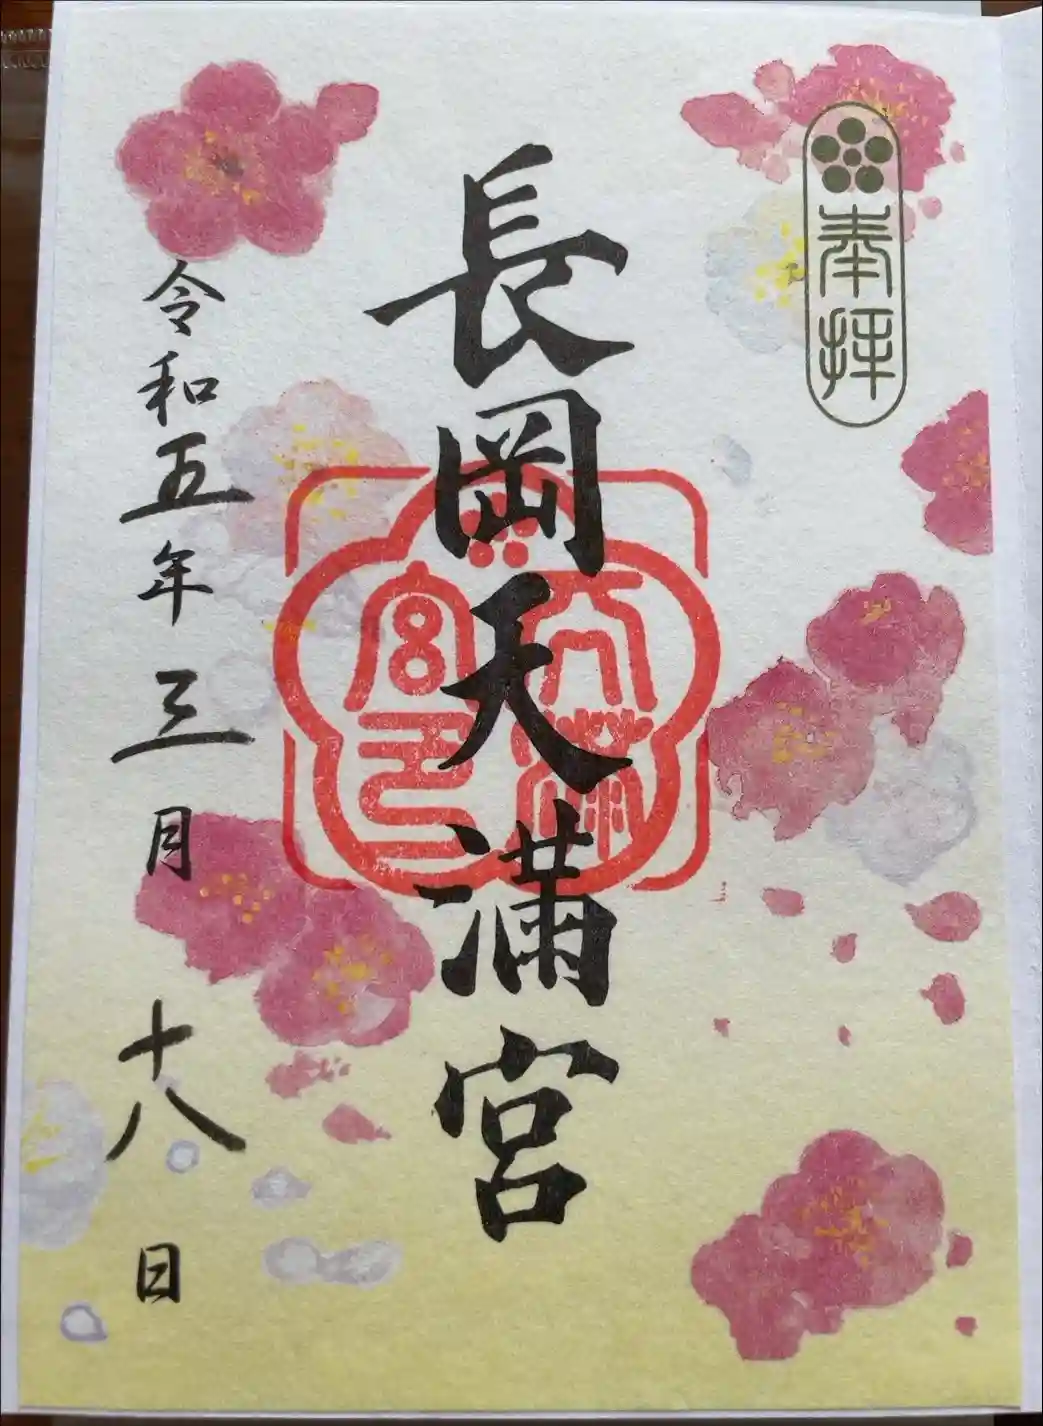 奉拝
長岡天満宮
令和五年三月十八日
天満宮印